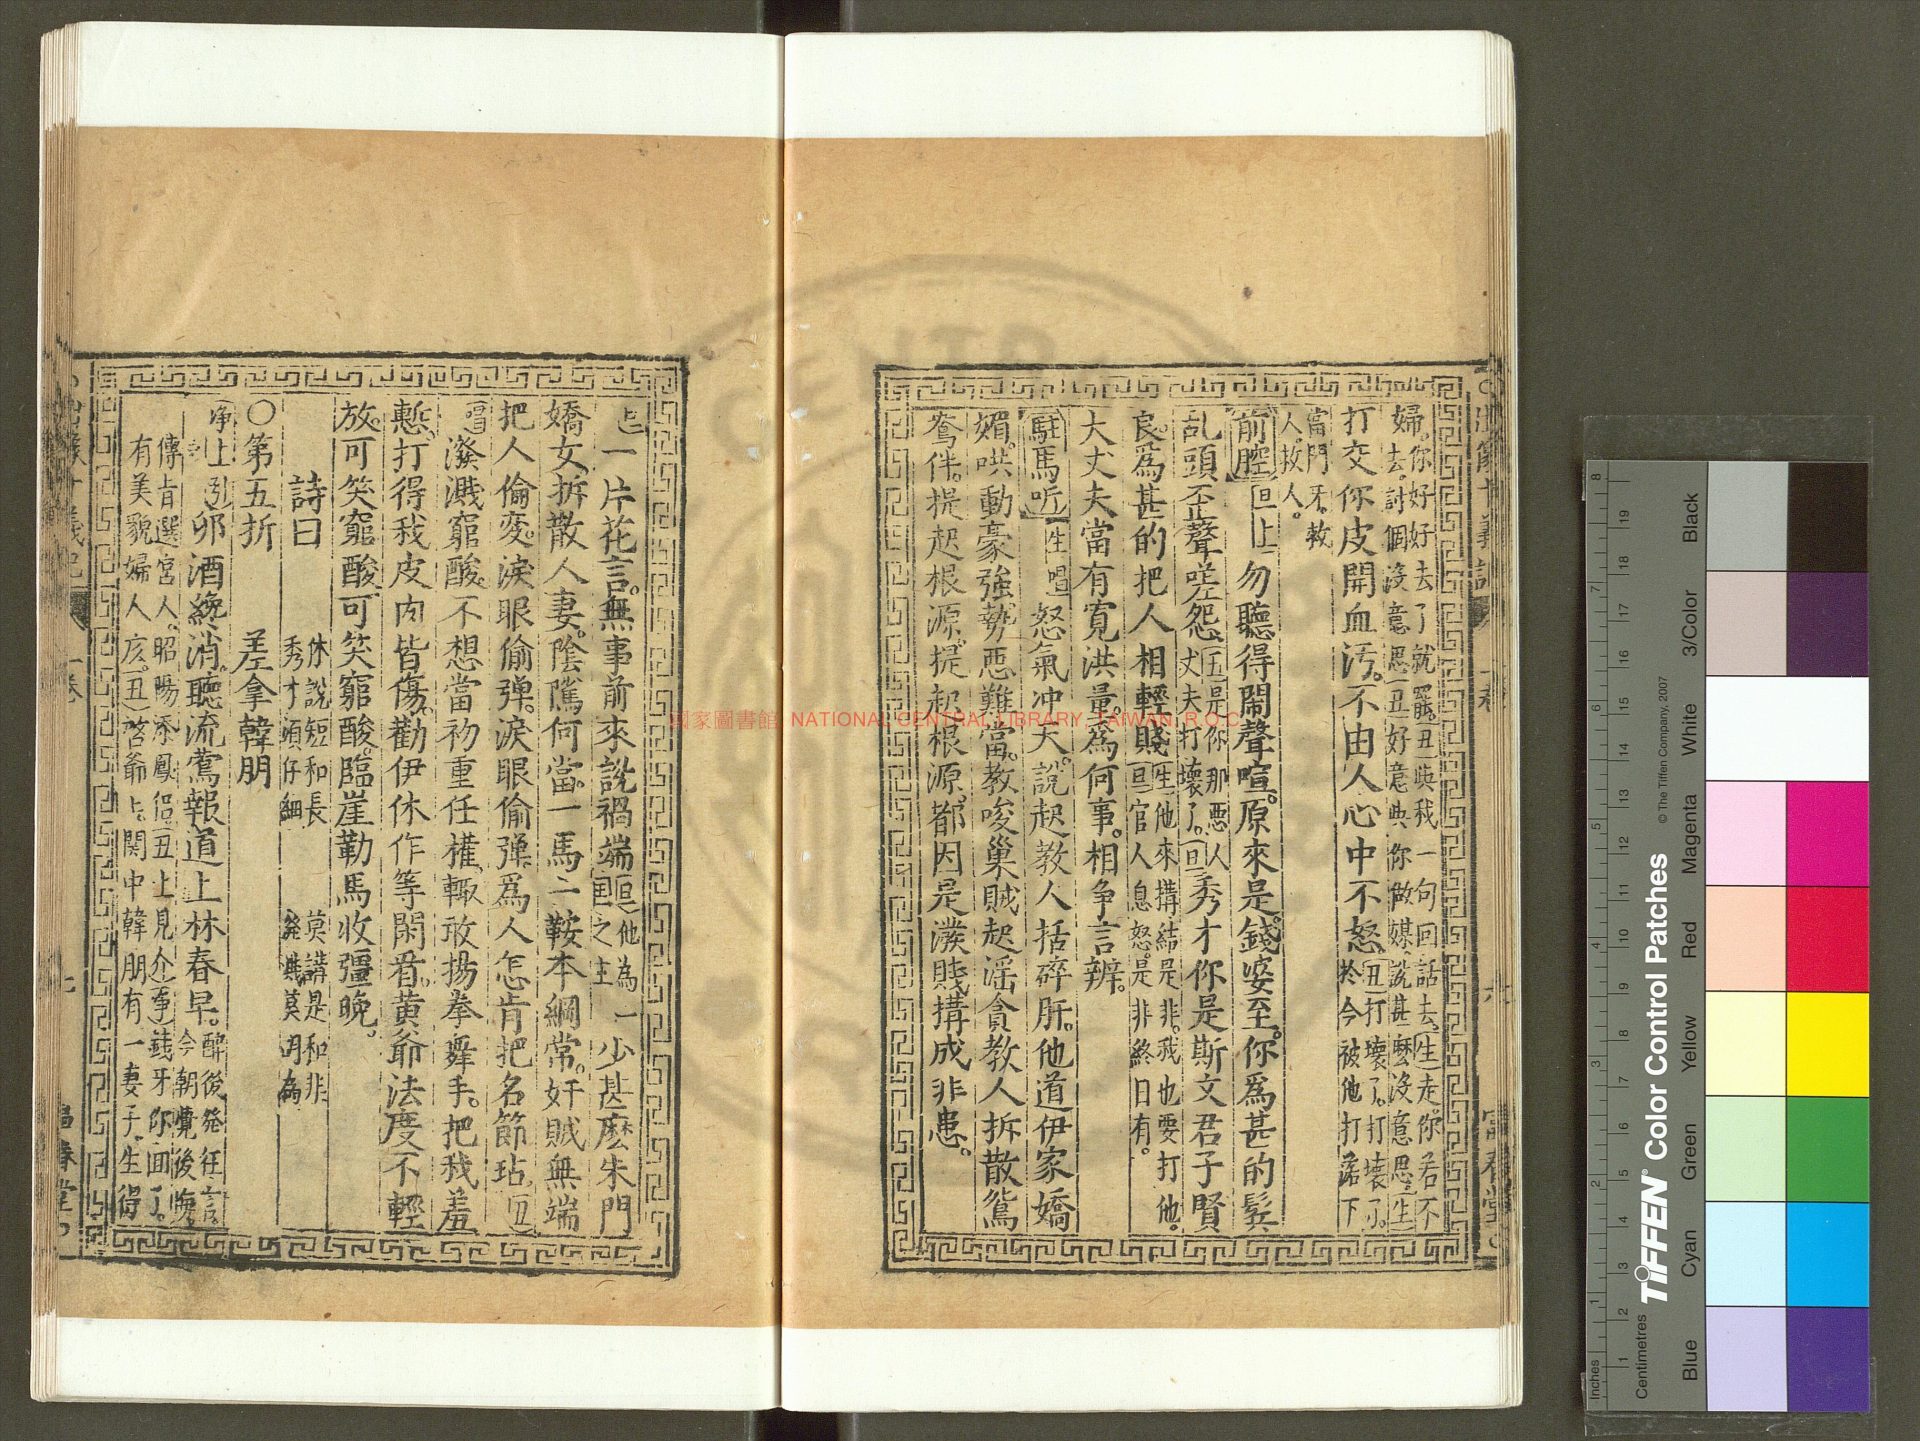 婦。你好好去了就罷 丑 與我一句回話去 生 走。你若不
去。討個沒意思 丑 好意與你做媒。說甚麼沒意思 生
打交你皮開血污。不由人心中不怒 丑 打壞了。打壞了。
於今被他打落下
當門牙。教
人。救人。
前腔 旦上 勿聽得鬧聲喧。原來是錢婆至。你爲甚的鬓
乱頭歪聲嗟怨 丑 是你那惡人
丈夫打壞了。 旦 秀才你是斯文君子賢
良。爲甚的把人相輕賤 生 他來搆結是非。我也要打他。
旦 官人息怒。是非終日有。
大丈夫當有寬洪量。爲何事。相争言辨。
駐馬听 生唱 怒氣冲天。說起教人括碎肝。他道伊家嬌
媚。哄動豪強勢惡難當。教唆巢賊起滛貪教人拆散鴛
鴦伴。提起根源。提起根源。都因是潑賤搆成非患。
一片花言。無事前來說禍端 旦 他為
之主一少甚麽朱門
嬌女拆散人妻。陰隲何當。一馬二鞍本綱常。奸賊無端
把人倫変。淚眼偷彈。淚眼偷彈爲人怎肯把名節玷。 丑
唱 潑濺窮酸。不想當初重任權。輙敢揚拳舞手。把我羞
慙。打得我皮肉皆傷。勸伊休作等閑看。黄爺法度不輕
放。可笑窮酸。可笑窮酸。臨崖勒馬收彊晚。
詩曰
休說短和長
秀才須仔細
莫講是和非
○第五折
差拿韓朋
净上引 卯酒纔消。聽流鶯報道上林春早。醉後発狂言
今朝覺後悔
傳旨選宮人。昭陽添鳳侣。 丑上見介 事 錢牙你回了。
有美貌婦人 亥。 丑 啓爺上。関中韓朋有一妻子。生得
國家圖書館 NATIONAL CENTRAL LIBRARY, TAIWAN, R.O.C
Inches
Centimetres
TIFFEN® Color Control Patches
© The Tiffen Company, 2007
Blue
Cyan
Green
Yellow
Red
Magenta
White
3/Color
Black